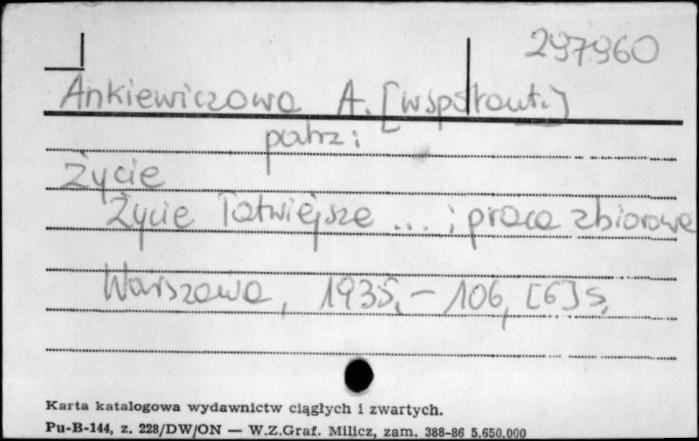 297960
Ankiewiczowa A. [współaut.]
patrz:
Życie
Życie łatwiejsze ... ; praca zbiorowa
Warszawa, 1935. – 106, [6] s.
Karta katalogowa wydawnictw ciągłych i zwartych.
Pu-B-144, z. 228/DW/ON — W.Z.Graf. Milicz, zam. 388-86 5.650.000